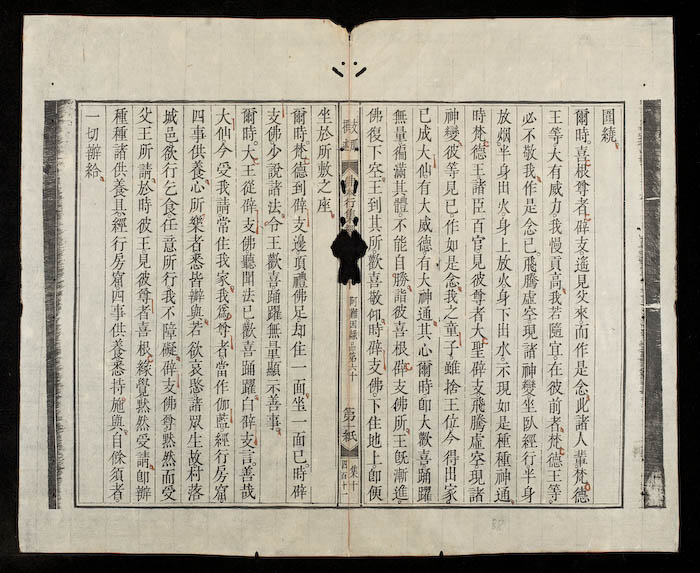 圍繞
爾時喜根尊者辟支遥見父來而作是念此諸人輩梵德
王等大有威力我慢貢高我若隨宜在彼前者梵德王等
必不敬我作是念已飛騰虛空現諸神變坐臥經行半身
放烟半身出火身上放火身下出水示現如是種種神通
時梵德王諸臣百官見彼尊者大聖辟支飛騰虛空現諸
神變彼等見已作如是念我之童子雖捨王位今得出家
已成大仙有大威德有大神通其心爾時卽大歡喜踊躍
無量徧滿其體不能自勝詣彼喜根辟支佛所王旣漸進
佛復下空王到其所歡喜敬仰時辟支佛下住地上卽便
行
阿難因緣品第六十
第一紙
集十
四百十一
坐於所敷之座
爾時梵德到辟支邊頂禮佛足却住一面坐一面已時辟
支佛少說諸法令王歡喜踊躍無量顯示善事
爾時大王從辟支佛聽聞法已歡喜踊躍白辟支言善哉
大仙今受我請常住我家我爲尊者當作伽藍經行房窟
四事供養心所樂者悉皆辦與若欲哀愍諸衆生故村落
城邑欲行乞食任意所行我不障礙辟支佛尊默然而受
父王所請於時彼王見彼尊者喜根緣覺默然受請卽辦
種種諸供養具經行房窟四事供養悉持施與自餘須者
一切辦給